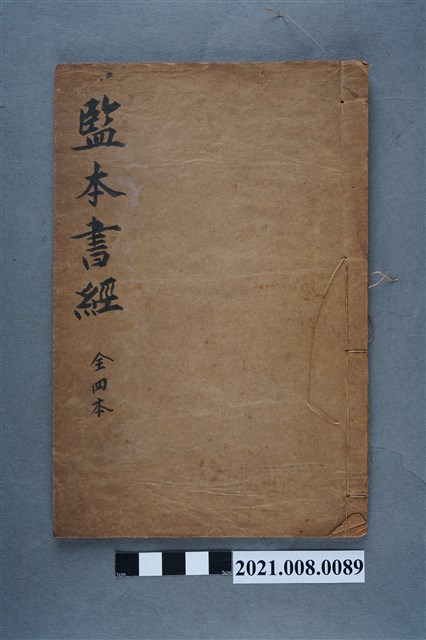 監本書經
全四本
1cm
5cm
2021.008.0089